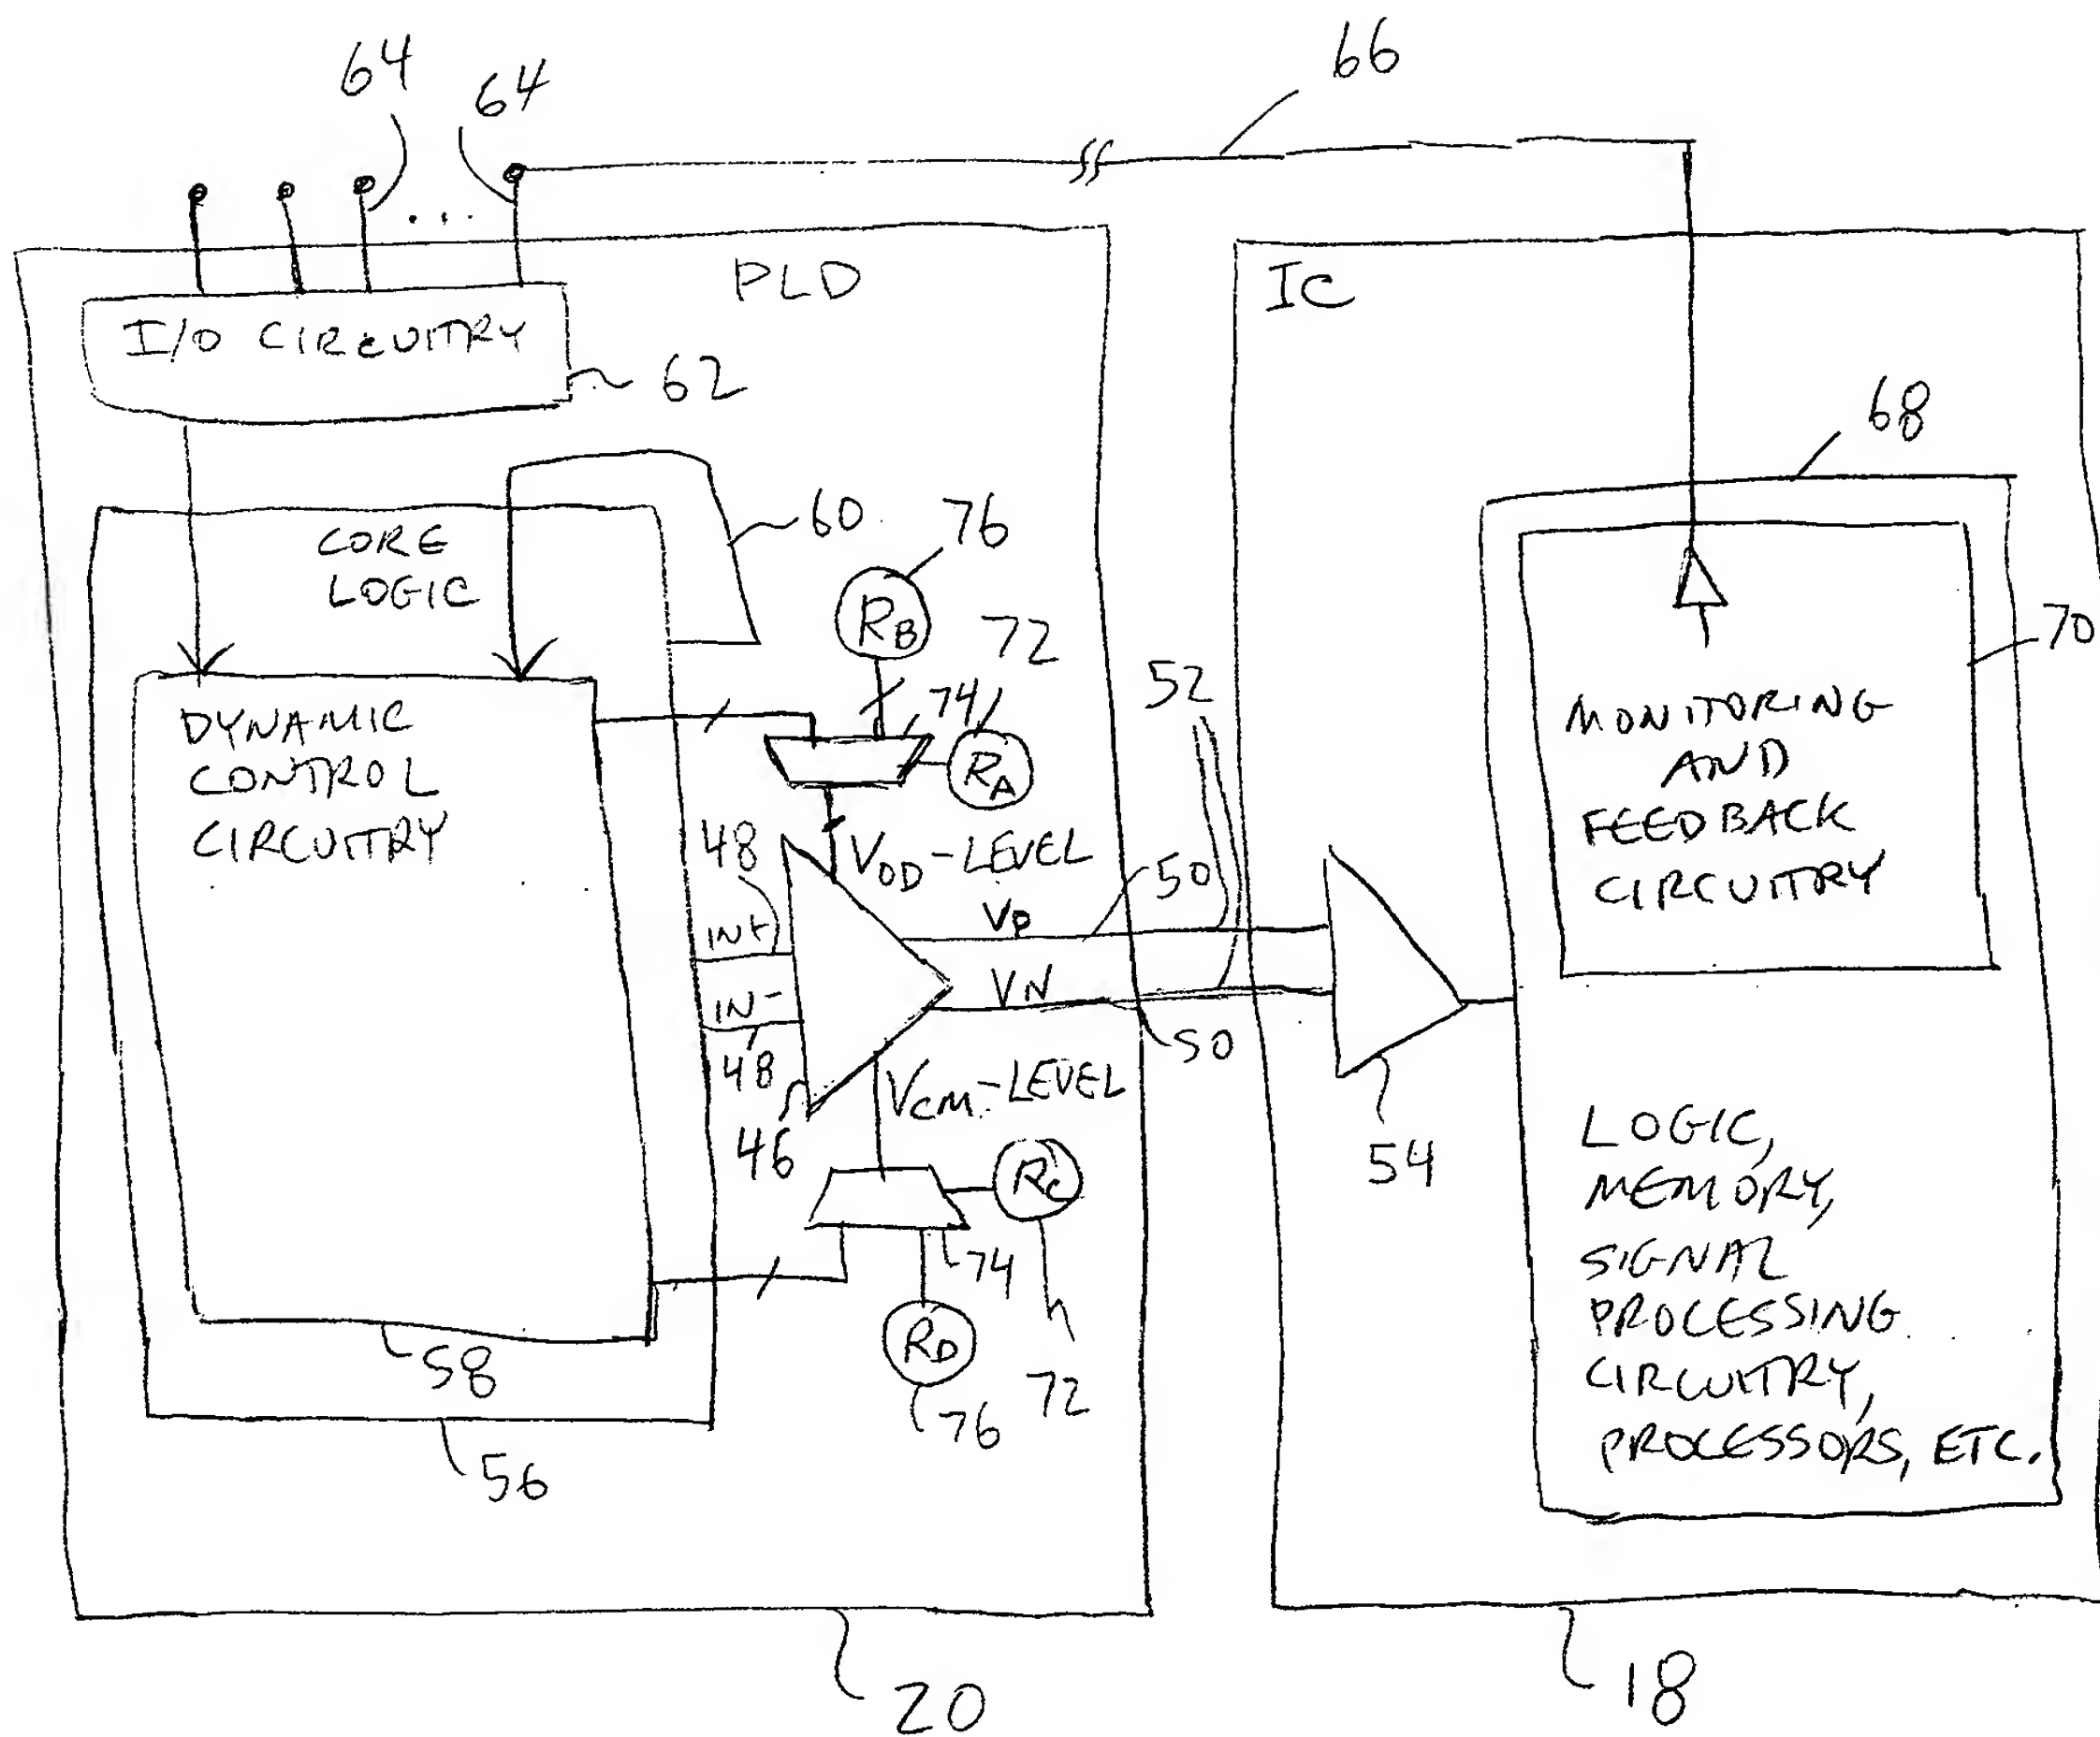 66
64
64
PLD
IC
I/O CIRCUITRY
62
68
60
76
CORE
LOGIC
RB
72
70
52
74
DYNAMIC
CONTROL
CIRCUITRY
RA
MONITORING
AND
FEEDBACK
CIRCUITRY
48
VOD-LEVEL
50
IN+
VP
IN-
VN
50
48
VCM-LEVEL
46
54
RC
LOGIC,
MEMORY,
SIGNAL
PROCESSING
CIRCUITRY,
PROCESSORS, ETC.
74
RD
58
72
76
56
20
18